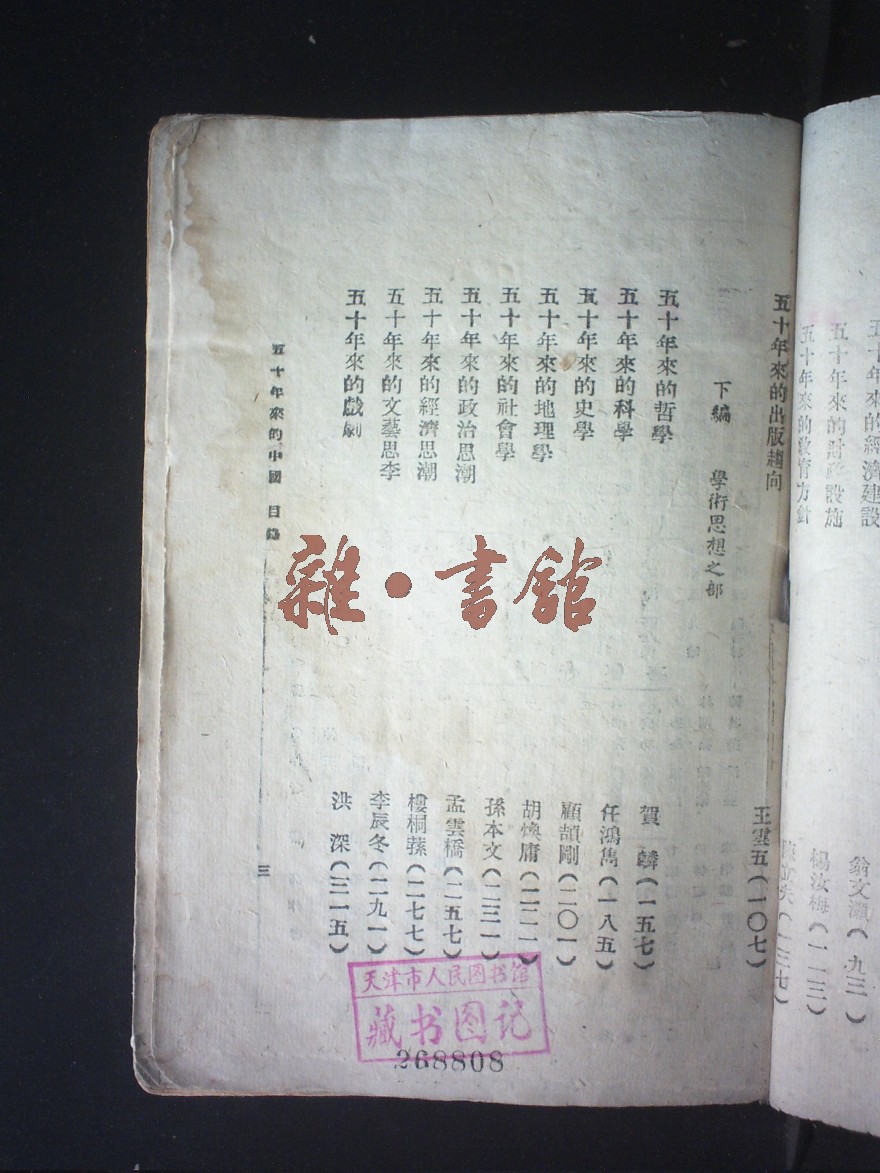 五十年來的經濟建設 翁文灝(九三)
五十年來的財政設施 楊汝梅(一一三)
五十年來的教育方針 陳立夫(一三七)
五十年來的出版趨向 王雲五(一〇七)
下編 學術思想之部
五十年來的哲學 賀麟(一五七)
五十年來的科學 任鴻雋(一八五)
五十年來的史學 顧頡剛(二〇一)
五十年來的地理學 胡煥庸(二二一)
五十年來的社會學 孫本文(二三一)
五十年來的政治思潮 孟雲橋(二五七)
五十年來的經濟思潮 樓桐蓀(二七七)
五十年來的文藝思李 李辰冬(二九一)
五十年來的戲劇 洪深(三一五)
五十年來的中國 目錄 三
雜·書館
天津市人民图书馆
藏书图记
268808